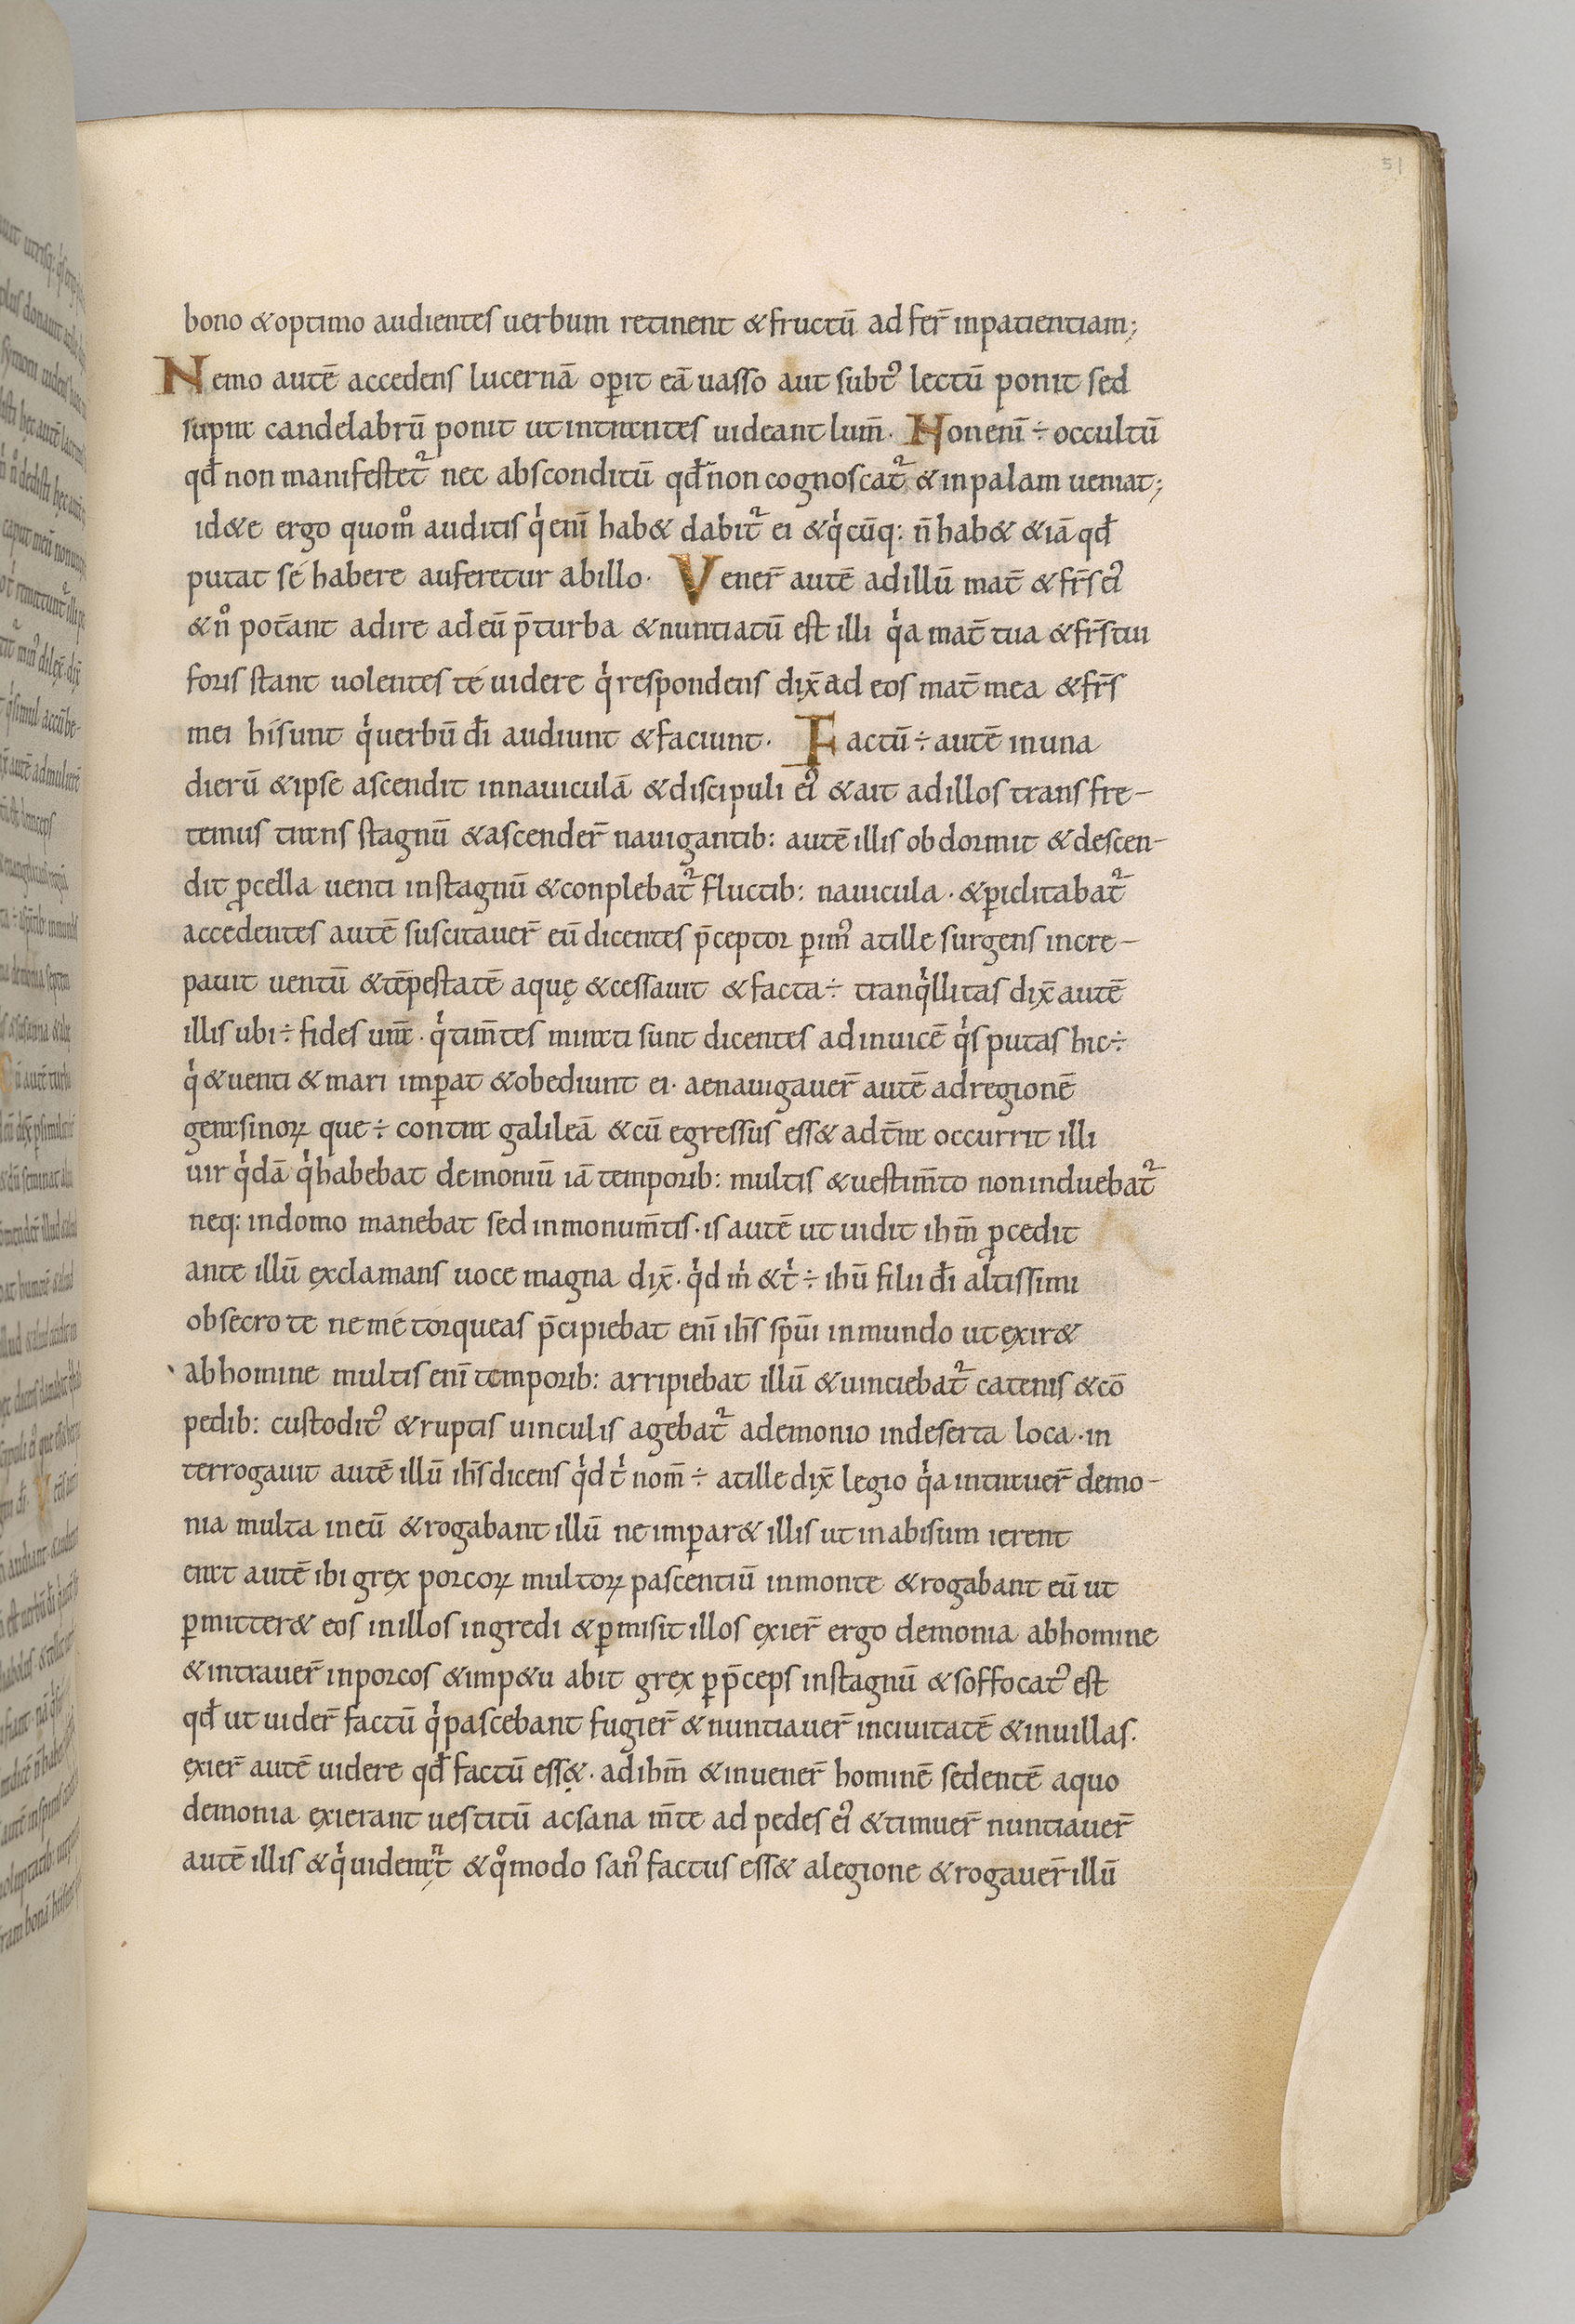 51
bono &optimo audientes uerbum retinent &fructū ad fer̄ inpatientiam;
Nemo autē accedens lucernā oꝑit eā uasso aut subt᷒ lectū ponit sed
supra candelabrū ponit ut intrantes uideant lum̄. Non enī ÷ occultū
qđ non manifestet᷑ nec absconditū qđ non cognoscat᷑ &inpalam ueniat;
id&e ergo quom̊ auditis qͥ enī hab& dabit᷑ ei &qͥcūq: n̄ hab& &iā qđ
putat sé habere auferetur abillo. Vener̄ autē adillū mat̄ &fr̄s ei᷒
&n̊ pot̄ant adire adeū p̄turba &nuntiatū est illi qͥa mat̄ tua &fr̄s tui
foris stant uolentes té uidere qͥ respondens dix̄ ad eos mat̄ mea &fr̄s
mei hí sunt qͥ uerbū dī audiunt &faciunt. Factū ÷ autē inuna
dierū &ipse ascendit innauiculā &discipuli ei᷒ &ait adillos transfre-
temus trans stagnū &ascender̄ nauigantib: autē illis obdormit &descen-
dit ꝓcella uenti instagnū &conplebat᷑ fluctib: nauicula. &ꝑiclitabat᷑
accedentes autē suscitauer̄ eū dicentes p̄ceptor ꝑim᷒ atille surgens incre-
pauit uentū &tēpestatē aquę &cessauit &facta ÷ tranqͥllitas dix̄ autē
illis ubi ÷ fides ur̄a. qͥ tim̄tes mirati sunt dicentes adinuicē qͥs putas hic ÷
qͥ &uenti &mari imꝑat &obediunt ei. aenauigauer̄ autē adregionē
gerasinoꝝ que ÷ contra galileā &cū egressus ess& adt̄ra occurrit illi
uir qͥdā qͥ habebat demoniū iā temporib: multis &uestim̄to noninduebat᷑
neq: indomo manebat sed inmonum̄tis. is autē ut uidit ihm̄ ꝓcedit
ante illū exclamans uoce magna dix̄. qͥd mͥ &tͥ ÷ ihū filii dī altissimi
obsecro te ne mé torqueas p̄cipiebat enī ihs̄ spūi inmundo ut exir&
abhomine multis enī temporib: arripiebat illū &uinciebat᷑ catenis &cō
pedib: custodit᷒ &ruptis uinculis agebat᷑ ademonio indeserta loca. in
terrogauit autē illū ihs̄ dicens qͥd tͥ nom̄ ÷ atille dix̄ legio qͥa intrauer̄ demo-
nia multa ineū &rogabant illū ne imꝑar& illis ut inabisum ierent
erat autē ibi grex porcoꝝ multoꝝ pascentiū inmonte &rogabant eū ut
ꝑmitter& eos inillos ingredi &ꝑmisit illos exier̄ ergo demonia abhomine
&intrauer̄ inporcos &imp&u abit grex ꝑ p̄ceps instagnū &soffocat᷒ est
qđ ut uider̄ factū qͥ pascebant fugier̄ &nuntiauer̄ inciuitatē &inuillas.
exier̄ autē uidere qđ factū ess&. adihm̄ &inuener̄ hominē sedentē aquo
demonia exierant uestitū acsana m̄te ad pedes ei᷒ &timuer̄ nuntiauer̄
autē illis &qͥ uiderant &qͦmodo san᷒ factus ess& alegione &rogauer̄ illū